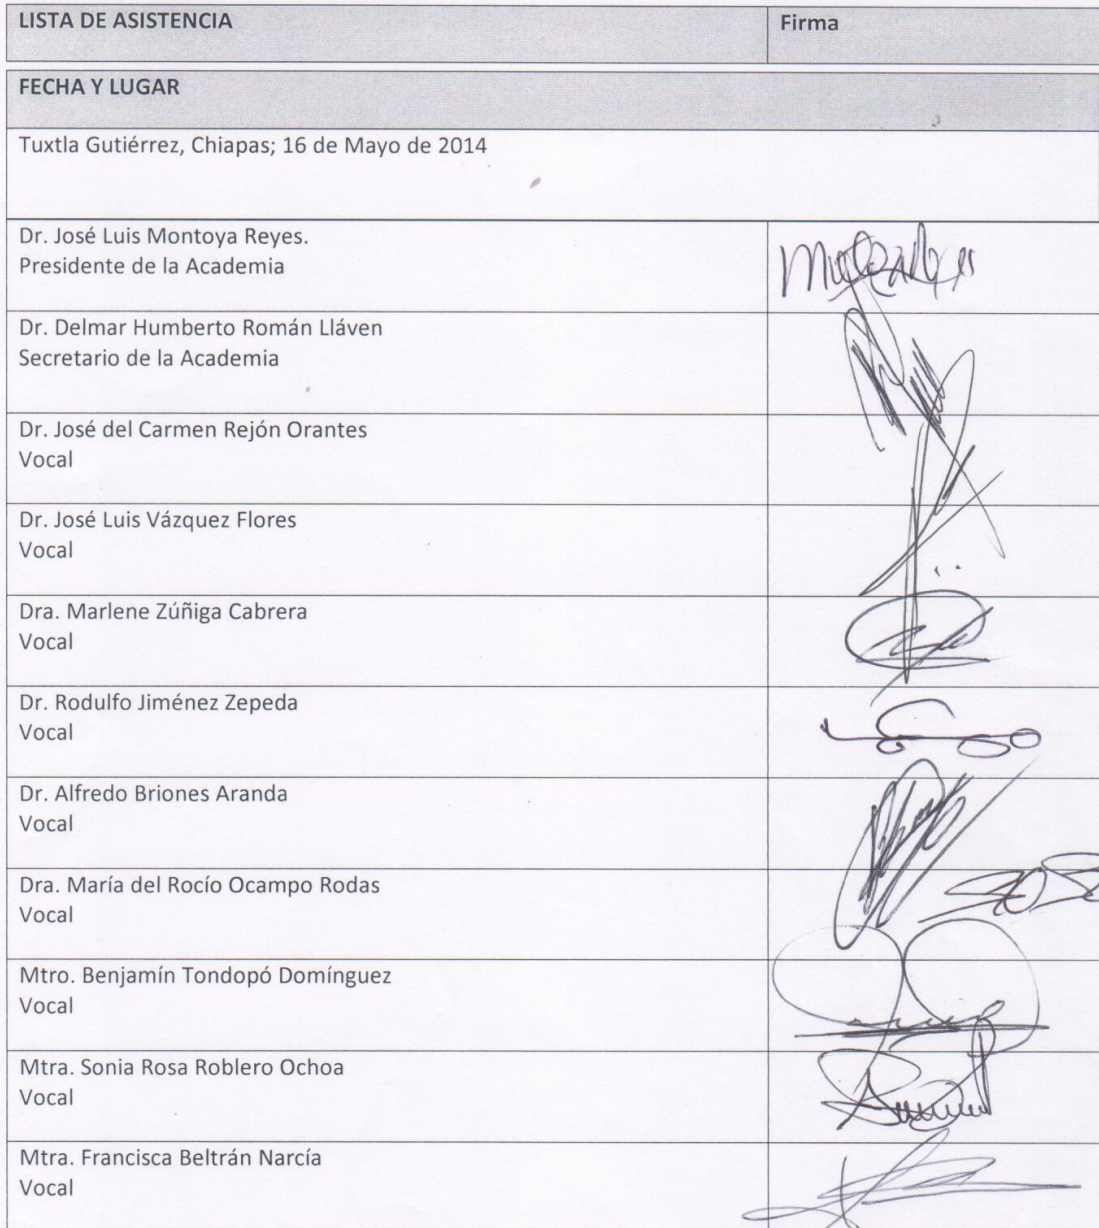 LISTA DE ASISTENCIA Firma
FECHA Y LUGAR
Tuxtla Gutiérrez, Chiapas; 16 de Mayo de 2014
Dr. José Luis Montoya Reyes.
Presidente de la Academia
Dr. Delmar Humberto Román Lláven
Secretario de la Academia
Dr. José del Carmen Rejón Orantes
Vocal
Dr. José Luis Vázquez Flores
Vocal
Dra. Marlene Zúñiga Cabrera
Vocal
Dr. Rodulfo Jiménez Zepeda
Vocal
Dr. Alfredo Briones Aranda
Vocal
Dra. María del Rocío Ocampo Rodas
Vocal
Mtro. Benjamín Tondopó Domínguez
Vocal
Mtra. Sonia Rosa Roblero Ochoa
Vocal
Mtra. Francisca Beltrán Narcía
Vocal